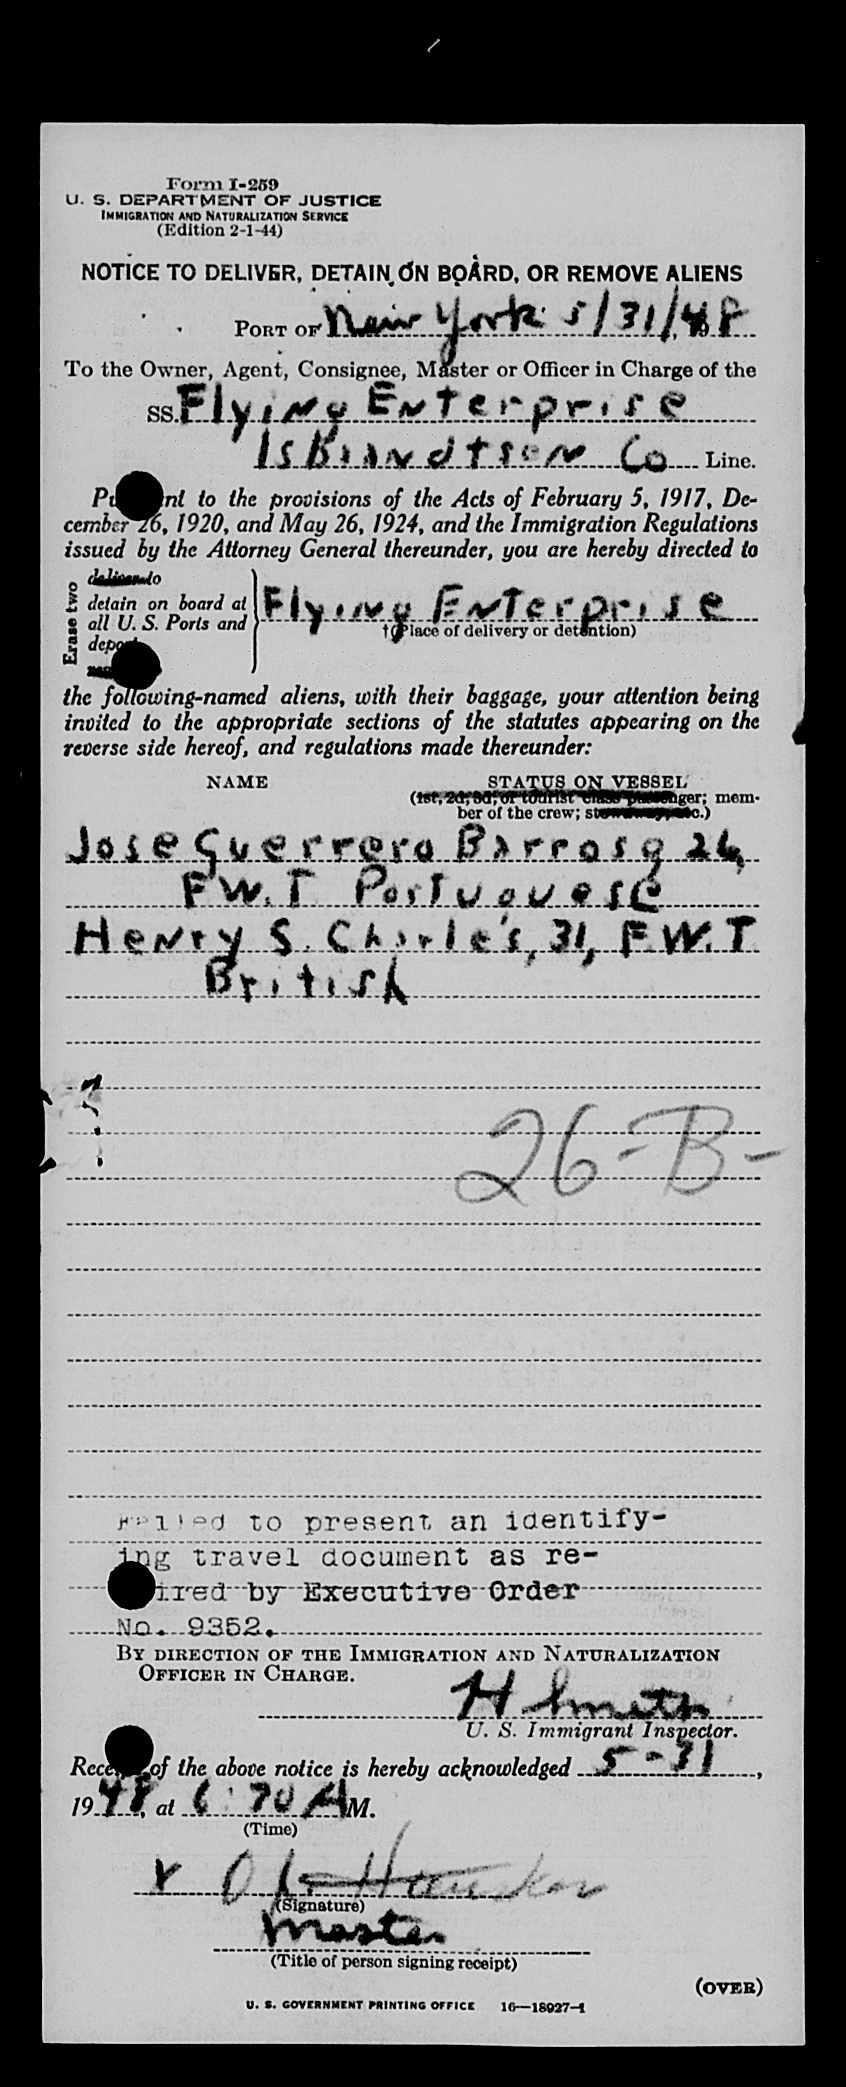 Form I-259
U. S. DEPARTMENT OF JUSTICE
IMMIGRATION AND NATURALIZATION SERVICE
(Edition 2-1-44)
NOTICE TO DELIVER, DETAIN ON BOARD, OR REMOVE ALIENS
PORT OF New York 5/31/48
To the Owner, Agent, Consignee, Master or Officer in Charge of the
SS. Flying Enterprise
Isbrandtsen Co Line.
to the provisions of the Acts of February 5, 1917, De-
cember 26, 1920, and May 26, 1924, and the Immigration Regulations
issued by the Attorney General thereunder, you are hereby directed to
Erase two
detain on board at
all U. S. Ports and
Flying Enterprise
†(Place of delivery or detention)
the following-named aliens, with their baggage, your attention being
invited to the appropriate sections of the statutes appearing on the
reverse side hereof, and regulations made thereunder:
NAME STATUS ON VESSEL
(1st, 2d, 3d, or tourist class passenger; mem-
ber of the crew; etc.)
Jose Guerrero Barrosa 26,
F.W.T Portuguese
Henry S. Charles, 31, F.W.T
British
26-B-
Failed to present an identify-
ing travel document as re-
ired by Executive Order
No. 9352.
BY DIRECTION OF THE IMMIGRATION AND NATURALIZATION
OFFICER IN CHARGE.
H Smith
U. S. Immigrant Inspector.
of the above notice is hereby acknowledged 5-31,
1948, at AM.
(Time)
(Signature)
Master
(Title of person signing receipt)
(OVER)
U. S. GOVERNMENT PRINTING OFFICE 16—18927-1